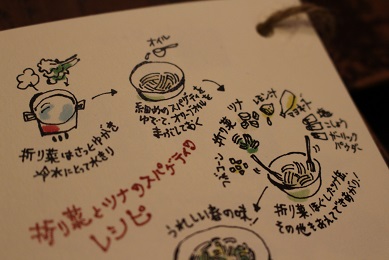 オイル
細めのスパゲティを
ゆでて、オリーブオイルを
まぶしておく
折り菜はさっとゆがき
冷水にとって水きり
折り菜
ツナ
レモン汁
マヨネーズ
塩
こしょう
ガーリック
パウダー
フルコーン
折り菜、ほぐしたツナ缶、
その他をあえてできあがり!
折り菜とツナのスパゲティの
レシピ
うれしい春の味!